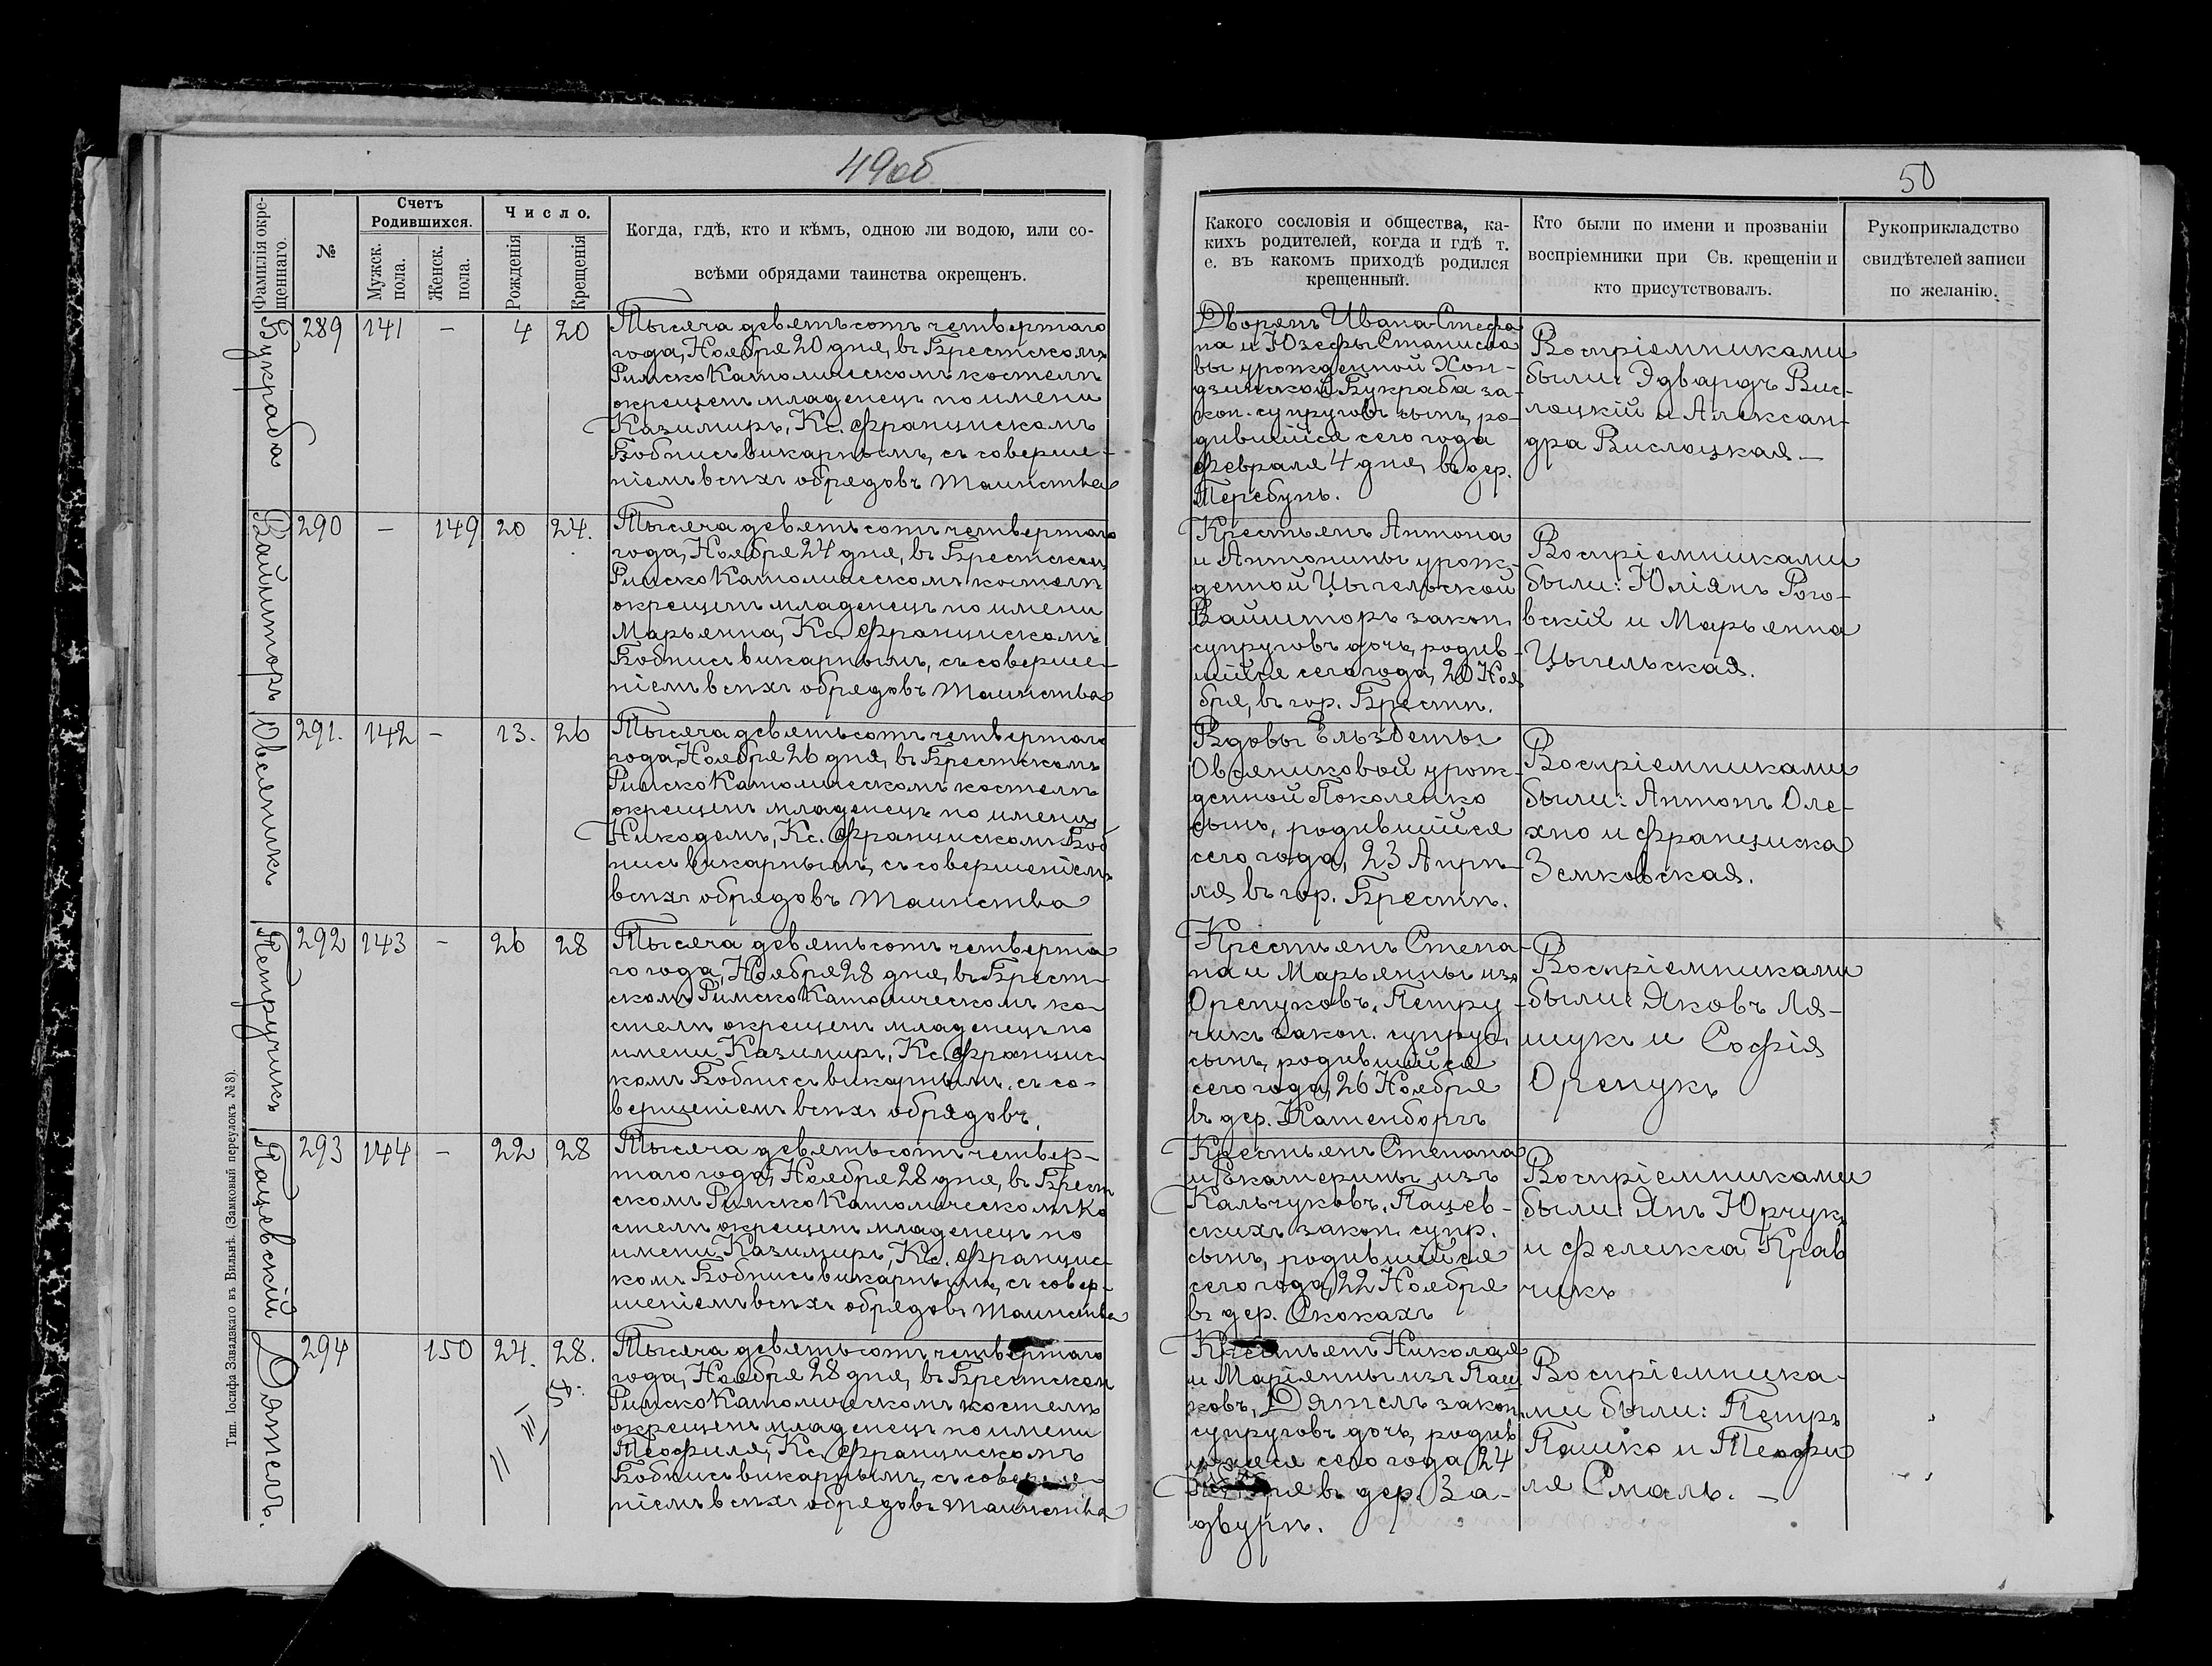 49об
50
Фамилія окре-
щеннаго.
№
Счетъ
Родившихся.
Мужск.
пола.
Женск.
пола.
Число.
Рожденія
Крещенія
Когда, гдѣ, кто и кѣмъ, одною ли водою, или со-
всѣми обрядами таинства окрещенъ.
Какого сословія и общества, ка-
кихъ родителей, когда и гдѣ т.
е. въ какомъ приходѣ родился
крещенный.
Кто были по имени и прозваніи
воспріемники при Св. крещеніи и
кто присутствовалъ.
Рукоприкладство
свидѣтелей записи
по желанію.
Букраба
289 141 - 4 20
Тысяча девятьсотъ четвертаго
года, Ноября 20 дня, въ Брестскомъ
РимскоКатолическомъ костелѣ
окрещенъ младенецъ по имени
Казимиръ, Кс. Францискомъ
Бобнисъ викарнымъ, съ соверше-
ніемъ всѣхъ обрядовъ таинства
Дворянъ Ивана Стефа
на и Юзефы Станисла
вы урожденной Хон-
дзинской Букраба за-
кон. супруговъ сынъ, ро-
дившійся сего года
Февраля 4 дня, въ дер.
Теребунь.
Воспріемниками
были: Эдвардъ Вис-
лоцкій и Алексан-
дра Вислоцкая —
Вайшторъ
290 - 149 20 24.
Тысяча девятьсотъ четвертаго
года, Ноября 24 дня, въ Брестском
РимскоКатолическомъ костелѣ
окрещенъ младенецъ по имени
Марьянна, Кс. Францискомъ
Бобнисъ викарнымъ, съ соверше-
ніемъ всѣхъ обрядовъ таинства
Крестьянъ Антона
и Антонины урож-
денной Цыгельской
Вайшторъ закон.
супруговъ дочь, родив-
шійся сего года, 20 Ноя
бря, въ гор. Брестѣ.
Воспріемниками
были: Юліянъ Рого-
вскій и Марьянна
Цыгельская.
Овсяникъ
291. 142 - 13. 26
Тысяча девятьсотъ четвертаго
года, Ноября 26 дня, въ Брестскомъ
РимскоКатолическомъ костелѣ
окрещенъ младенецъ по имени
Никодемъ, Кс. Францискомъ Боб
нисъ викарнымъ, съ совершеніемъ
всѣхъ обрядовъ таинства
Вдовы Ельзбеты
Овсяниковой урож-
денной Поколенко
сынъ, родившійся
сего года, 23 Апрѣ-
ля въ гор. Брестѣ.
Воспріемниками
были: Антонъ Оле-
хно и Франциска
Земковская.
Петручикъ
292 143 - 26 28
Тысяча девятьсотъ четверта
го года, Ноября 28 дня, въ Брест-
скомъ РимскоКатолическомъ ко-
стелѣ окрещенъ младенецъ по
имени Казимиръ, Кс. Францис-
комъ Бобнисъ викарнымъ, съ со-
вершеніемъ всѣхъ обрядовъ.
Крестьянъ Степа-
на и Марьянны изъ
Орепуковъ, Петру-
чикъ закон. супруг.
сынъ, родившійся
сего года, 26 Ноября
въ дер. Катенборгъ
Воспріемниками
были: Яковъ Ля-
шукъ и Софія
Орепукъ
Пацевскій
293 144 - 22 28
Тысяча девятьсотъ четвер-
таго года, Ноября 28 дня, въ Брест
скомъ РимскоКатолическомъ ко
стелѣ окрещенъ младенецъ по
имени Казимиръ, Кс. Францис-
комъ Бобнисъ викарнымъ, съ совер-
шеніемъ всѣхъ обрядовъ таинства
Крестьянъ Степана
и Екатерины изъ
Кальчуковъ, Пацев-
скихъ закон. супр.
сынъ, родившійся
сего года, 22 Ноября
въ дер. Скокахъ
Воспріемниками
были: Янъ Юрчукъ
и Феликса Крав
чикъ
Дятелъ.
294 150 24. 28.
Тысяча девятьсотъ четвертаго
года, Ноября 28 дня, въ Брестском
РимскоКатолическомъ костелѣ
окрещенъ младенецъ по имени
Теофиля, Кс. Францискомъ
Бобнисъ викарнымъ, съ соверше-
ніемъ всѣхъ обрядовъ таинства
Крестьянъ Николая
и Маріянны изъ Паш
ковъ, Дятелъ закон.
супруговъ дочь, родив
шаяся сего года, 24
Ноября въ дер. За-
двурѣ.
Воспріемника-
ми были: Петръ
Пашко и Теофи
ля Смаль. —
Тип. Іосифа Завадзкаго въ Вильнѣ. (Замковый переулокъ № 8).